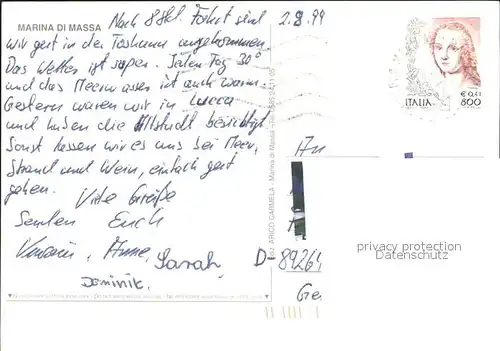 MARINA DI MASSA
Nach 8 Std. Fahrt sind
wir gut in der Toskana angekommen.
Das Wetter ist super. Jeden Tag 30°
und das Meerwasser ist auch warm.
Gestern waren wir in Lucca
und haben die Altstadt besichtigt.
Sonst lassen wir es uns bei Meer,
Strand und Wein, einfach gut
gehen. Viele Grüße
Senden Euch
Anne, Sarah,
Dominik.
2.8.99
€ 0,41
ITALIA 800
ARICO CARMELA - Marina di Massa
An
D-89264
privacy protection
Datenschutz